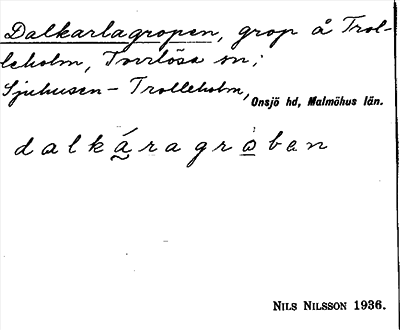 Dalkarlagropen, grop å Trol-
leholm, Torrlösa sn;
Sjuhusen - Trolleholm, Onsjö hd, Malmöhus län.
dalkáragroben
NILS NILSSON 1936.